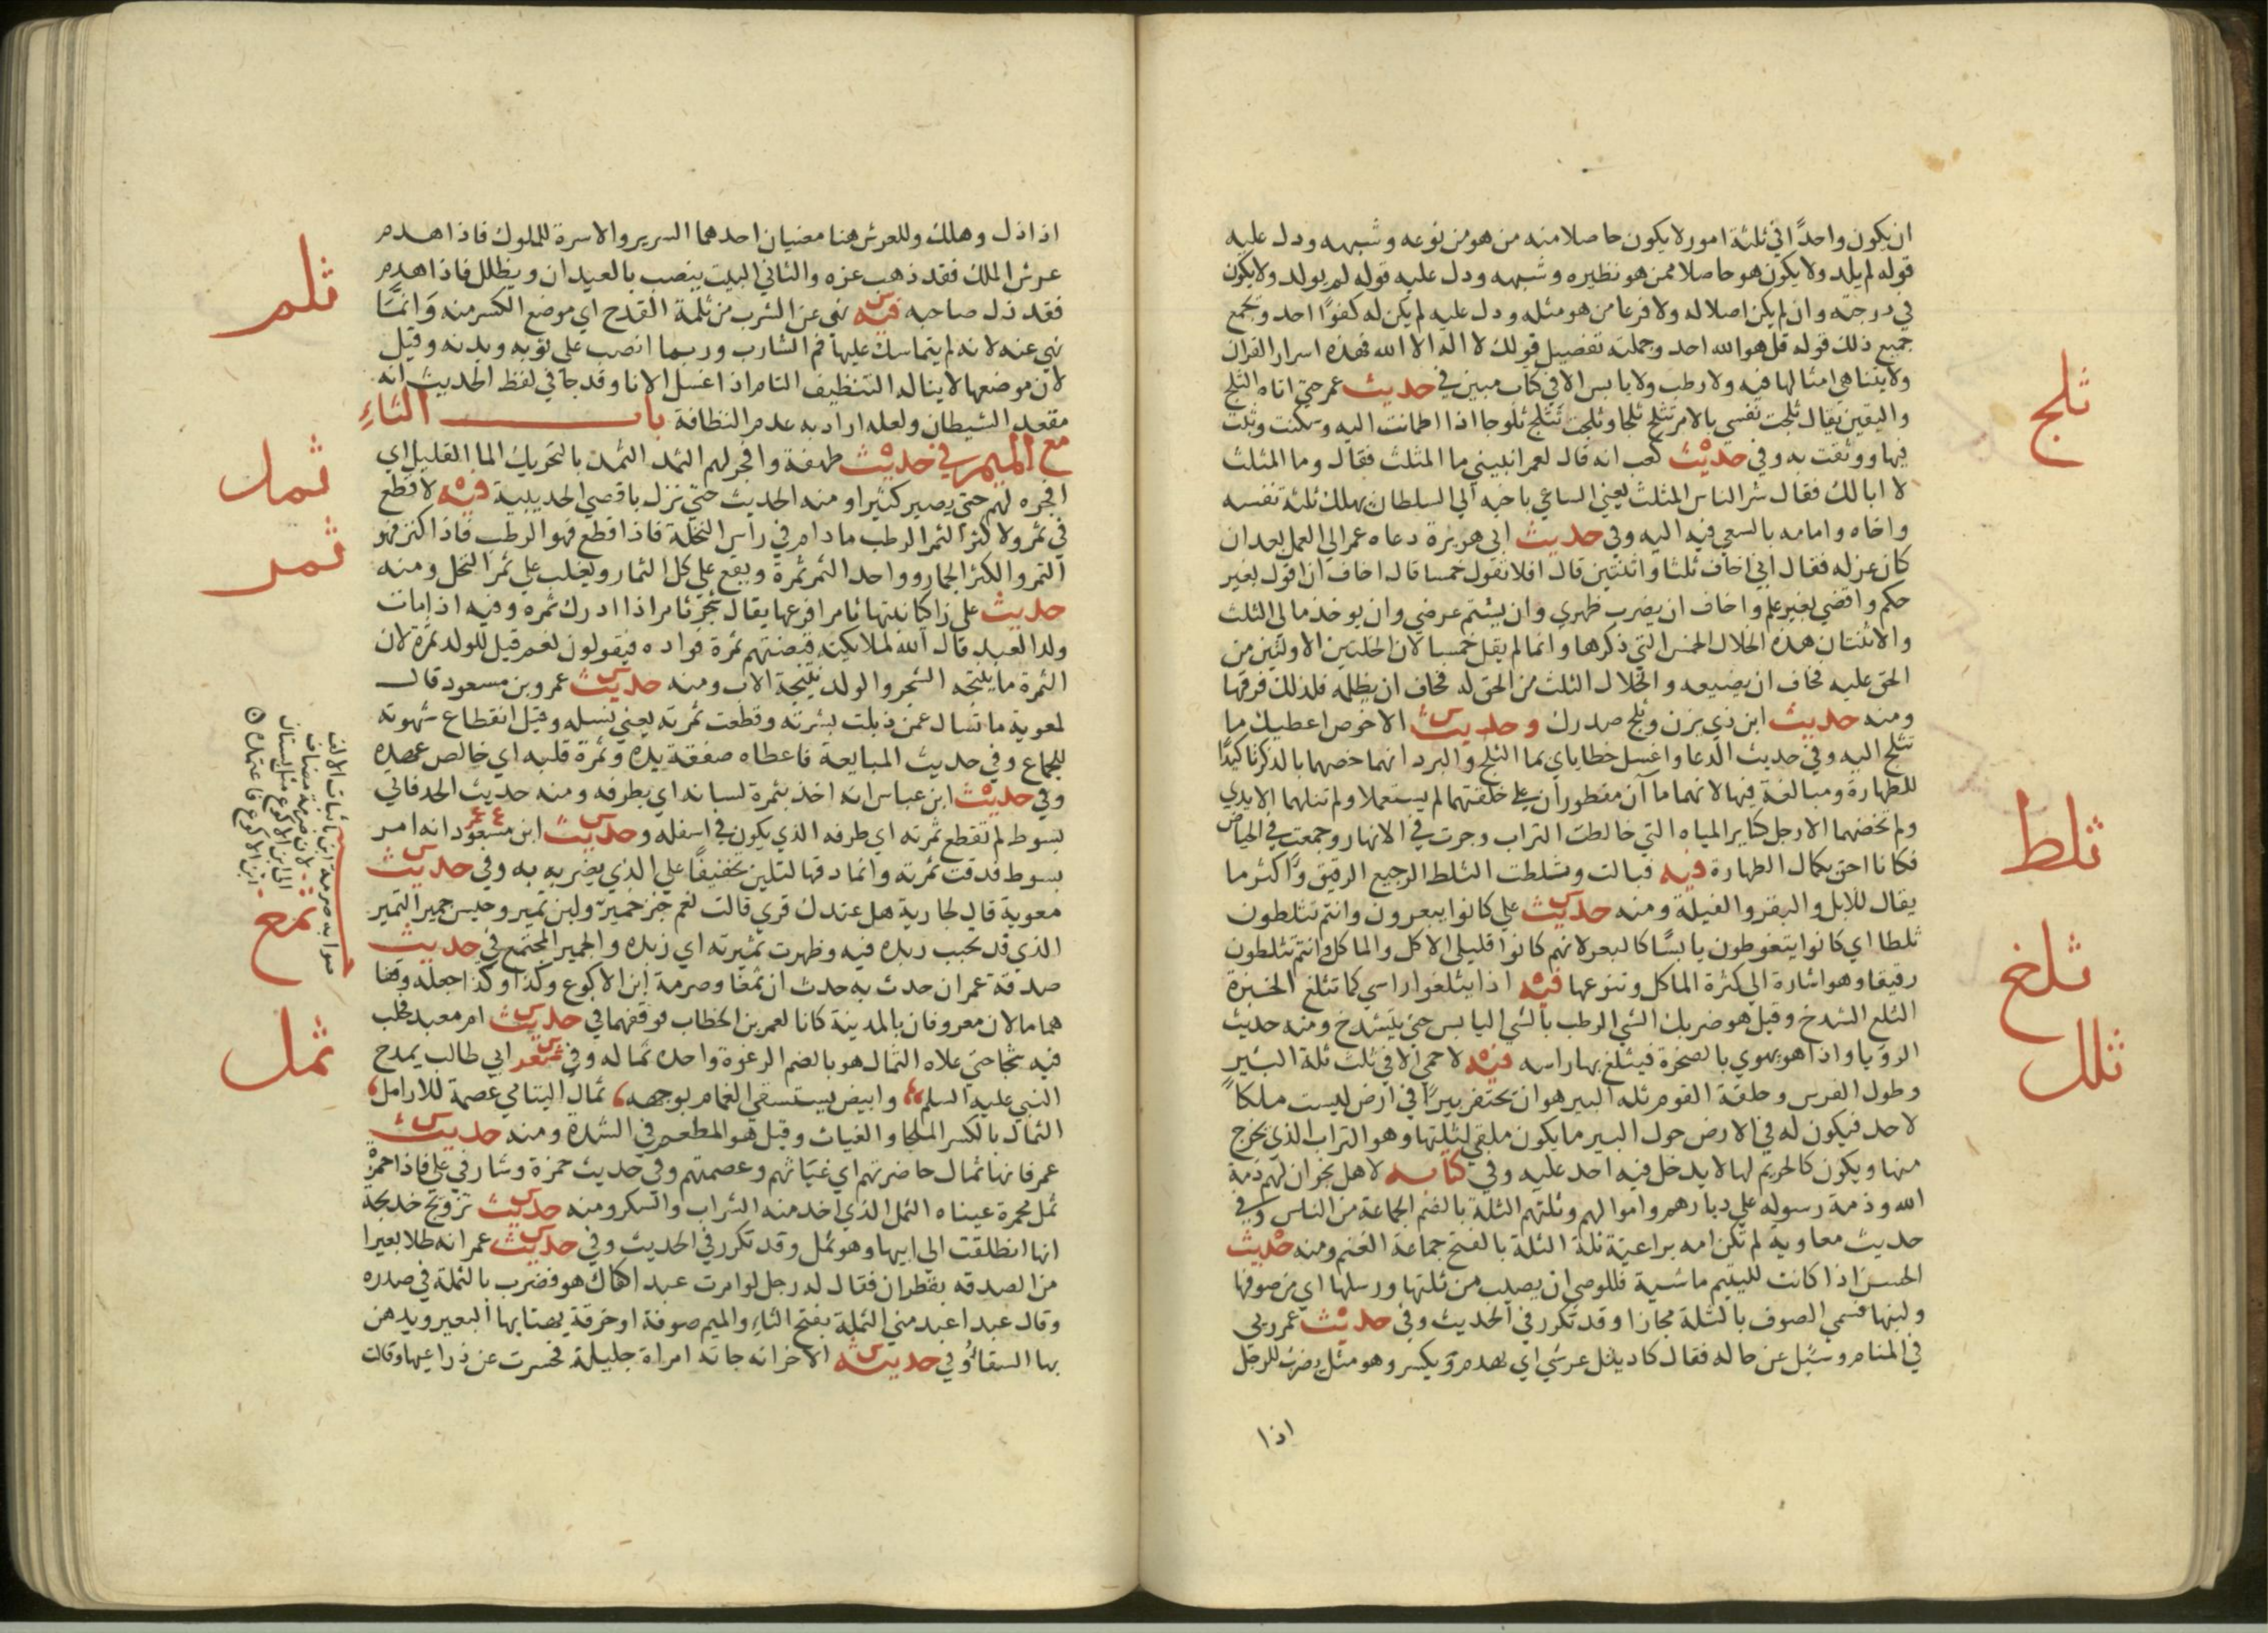 ان يكون واحدا في ثلثة امور لا يكون حاصلا منه من هو من نوعه وشبهه ودل عليه
قوله لم يلد ولا يكون هو حاصلا ممن هو نظيره وشبهه ودل عليه قوله لم يولد ولا يكون
في درجته وان لم يكن اصلا له ولا فرعا من هو مثله ودل عليه لم يكن له كفوا احد وتجمع
جميع ذلك قوله قل هو الله احد وجملته تفضيل قولك لا اله الا الله فهذه اسرار القران
ولا يتناهي امثالها فيه ولا رطب ولا يابس الا في كتاب مبين في حديث عمر حتي اتاه الثلج
واليقين يقال ثلجت نفسي بالامر تثلج ثلجا وثلجت تثلج ثلوجا اذا اطمانت اليه وسكنت وثبت
فيها ووثقت به وفي حديث كعب انه قال لعمر انبيني ما المثلث فقال وما المثلث
لا ابا لك فقال شر الناس المثلث يعني الساعي باخيه الي السلطان يهلك ثلثة نفسه
واخاه وامامه بالسعي فيه اليه وفي حديث ابي هريرة دعاه عمر الي العمل بعد ان
كان عزله فقال اني اخاف ثلثا واثنتين قال افلا تقول خمسا قال اخاف ان اقول بغير
حكم واقضي بغير علم واخاف ان يضرب ظهري وان يشتم عرضي وان يوخذ مالي الثلث
والاثنتان هذه الخلال الخمس التي ذكرها وانما لم يقل خمسا لان الخلتين الاولتين من
الحق عليه فخاف ان يضيعه والخلال الثلث من الحق له فخاف ان يظلم فلذلك فرقها
ومنه حديث ابن ذي يزن وثلج صدرك وحديث الاخوص اعطيك ما
تثلج اليه وفي حديث الدعا واغسل خطاياي بما الثلج والبرد انهما خصهما بالذكر تاكيدا
للطهارة ومبالغة فيها لانهما ماآن مفطوران علي خلقتهما لم يستعملا ولم تنلهما الايدي
ولم تخضهما الارجل كساير المياه التي خالطت التراب وجرت في الانهار وجمعت في الحياض
فكانا احق بكمال الطهارة فيه فبالت وثلطت الثلط الرجيع الرقيق واكثر ما
يقال للابل والبقر والفيلة ومنه حديث علي كانوا يبعرون وانتم تثلطون
ثلطا اي كانوا يتغوطون يابسا كالبعر لانهم كانوا قليلي الاكل والماكل وانتم تثلطون
رقيقا وهو اشارة الي كثرة الماكل وتنوعها فيه اذا يثلغوا راسي كما تثلغ الخبزة
الثلغ الشدخ وقيل هو ضربك الشي الرطب بالشي اليابس حتي ينشدخ ومنه حديث
الرويا واذا هو يهوي بالصخرة فيثلغ بها راسه فيه لا حمي الا في ثلث ثلة البئير
وطول الفرس وحلقة القوم ثله البير هو ان يحتفر بيرا في ارض ليست ملكا
لاحد فيكون له في الارض حول البير ما يكون ملقي لثلتها وهو التراب الذي يخرج
منها ويكون كالحريم لها لا يدخل فيه احد عليه وفي كتابه لاهل نجران لهم ذمة
الله وذمة رسوله علي ديارهم واموالهم وثلتهم الثلة بالضم الجماعة من الناس وفي
حديث معاوية لم تكن امه براعية ثلة الثلة بالفتح جماعة الغنم ومنه حديث
الحسن اذا كانت لليتيم ماشية فللوصي ان يصيب من ثلتها ورسلها اي من صوفها
ولبنها فسمي الصوف بالثلة مجازا وقد تكرر في الحديث وفي حديث عمر ربي
في المنام وسئل عن حاله فقال كاد يثل عرشي اي يهدم ويكسر وهو مثل يضرب للرجل
اذا
ثلج
ثلط
ثلغ
ثلل
اذا ذل وهلك وللعرش هنا معنيان احدهما السرير والاسرة للملوك فاذا هدم
عرش الملك فقد ذهب عزه والثاني البيت ينصب بالعيدان ويظلل فاذا هدم
فقد ذل صاحبه فيه نهي عن الشرب من ثلمة القدح اي موضع الكسر منه وانما
نهي عنه لانه لم يتماسك عليها فم الشارب وربما انصب علي ثوبه وبدنه وقيل
لان موضعها لا يناله التنظيف التام اذا غسل الانا وقد جا في لفظ الحديث انه
مقعد الشيطان ولعله اراد به عدم النظافة باب الثاء
مع الميم في حديث طهفة وافجر لهم الثمد الثمد بالتحريك الما القليل اي
افجره لهم حتي يصير كثيرا ومنه الحديث حتي نزل باقصي الحديبية فيه لا قطع
في ثمر ولا كثر الثمر الرطب مادام في راس النخلة فاذا قطع فهو الرطب فاذا كنز فهو
التمر والكثر الجمار وواحد الثمر ثمرة ويقع علي كل الثمار ويغلب علي ثمر النخل ومنه
حديث علي زاكيا نبتها ثامرا فرعها يقال شجر ثامر اذا ادرك ثمره وفيه اذا مات
ولد العبد قال الله لملايكته قبضتم ثمرة فواده فيقولون نعم قيل للولد ثمرة لان
الثمرة ما ينتجه الشجر والولد نتيجة الاب ومنه حديث عمرو بن مسعود قال
لمعوية ما تسال عمن ذبلت بشرته وقطعت ثمرته يعني نسله وقيل انقطاع شهوته
للجماع وفي حديث المبايعة فاعطاه صفقة يده وثمرة قلبه اي خالص عهده
وفي حديث ابن عباس انه اخذ بثمرة لسانه اي بطرفه ومنه حديث الحد فاتي
بسوط لم تقطع ثمرته اي طرفه الذي يكون في اسفله وحديث ابن مسعود انه امر
بسوط فدقت ثمرته وانما دقها لتلين تخفيفا علي الذي يضربه به وفي حديث
معوية قال لجارية هل عندك قري قالت نعم خبز خمير ولبن ثمير وحيس جمير الثمير
الذي قد تحبب زبده فيه وظهرت ثميرته اي زبده والجمير المجتمع في حديث
صدقة عمر ان حدث به حدث ان ثمغا وصرمة ابن الاكوع وكذا وكذا جعله وقفا
هما مالان معروفان بالمدينة كانا لعمر بن الخطاب فوقفهما في حديث ام معبد فحلب
فيه ثجا حتي علاه الثمال هو بالضم الرغوة واحده ثماله وفي شعر ابي طالب يمدح
النبي عليه السلم وابيض يستسقي الغمام بوجهه ثمال اليتامي عصمة للارامل
الثمال بالكسر الملجا والغياث وقيل هو المطعم في الشدة ومنه حديث
عمر فانها ثمال حاضرتهم اي غياثهم وعصمتهم وفي حديث حمزة وشارفي علي فاذا حمزة
ثمل محمرة عيناه الثمل الذي اخذ منه الشراب والسكر ومنه حديث تزويج خديجة
انها انطلقت الي ابيها وهو ثمل وقد تكرر في الحديث وفي حديث عمر انه طلا بعيرا
من الصدقه بقطران فقال له رجل لو امرت عبدا كفاك هو فضرب بالثملة في صدره
وقال عبد اعبد مني الثملة بفتح الثاء والميم صوفة او خرقة يهنا بها البعير ويدهن
بها السقا وفي حديثه الاخر انه جاته امراة جليلة فحسرت عن ذراعيها وقالت
ثلم
ثمد
ثمر
ثمغ
ثمل
صوابه صرمة ابن باثبات الالف
لان صرمة مضاف
الي ابن الاكوع مثل بستان
ابن الاكوع فاعتمده